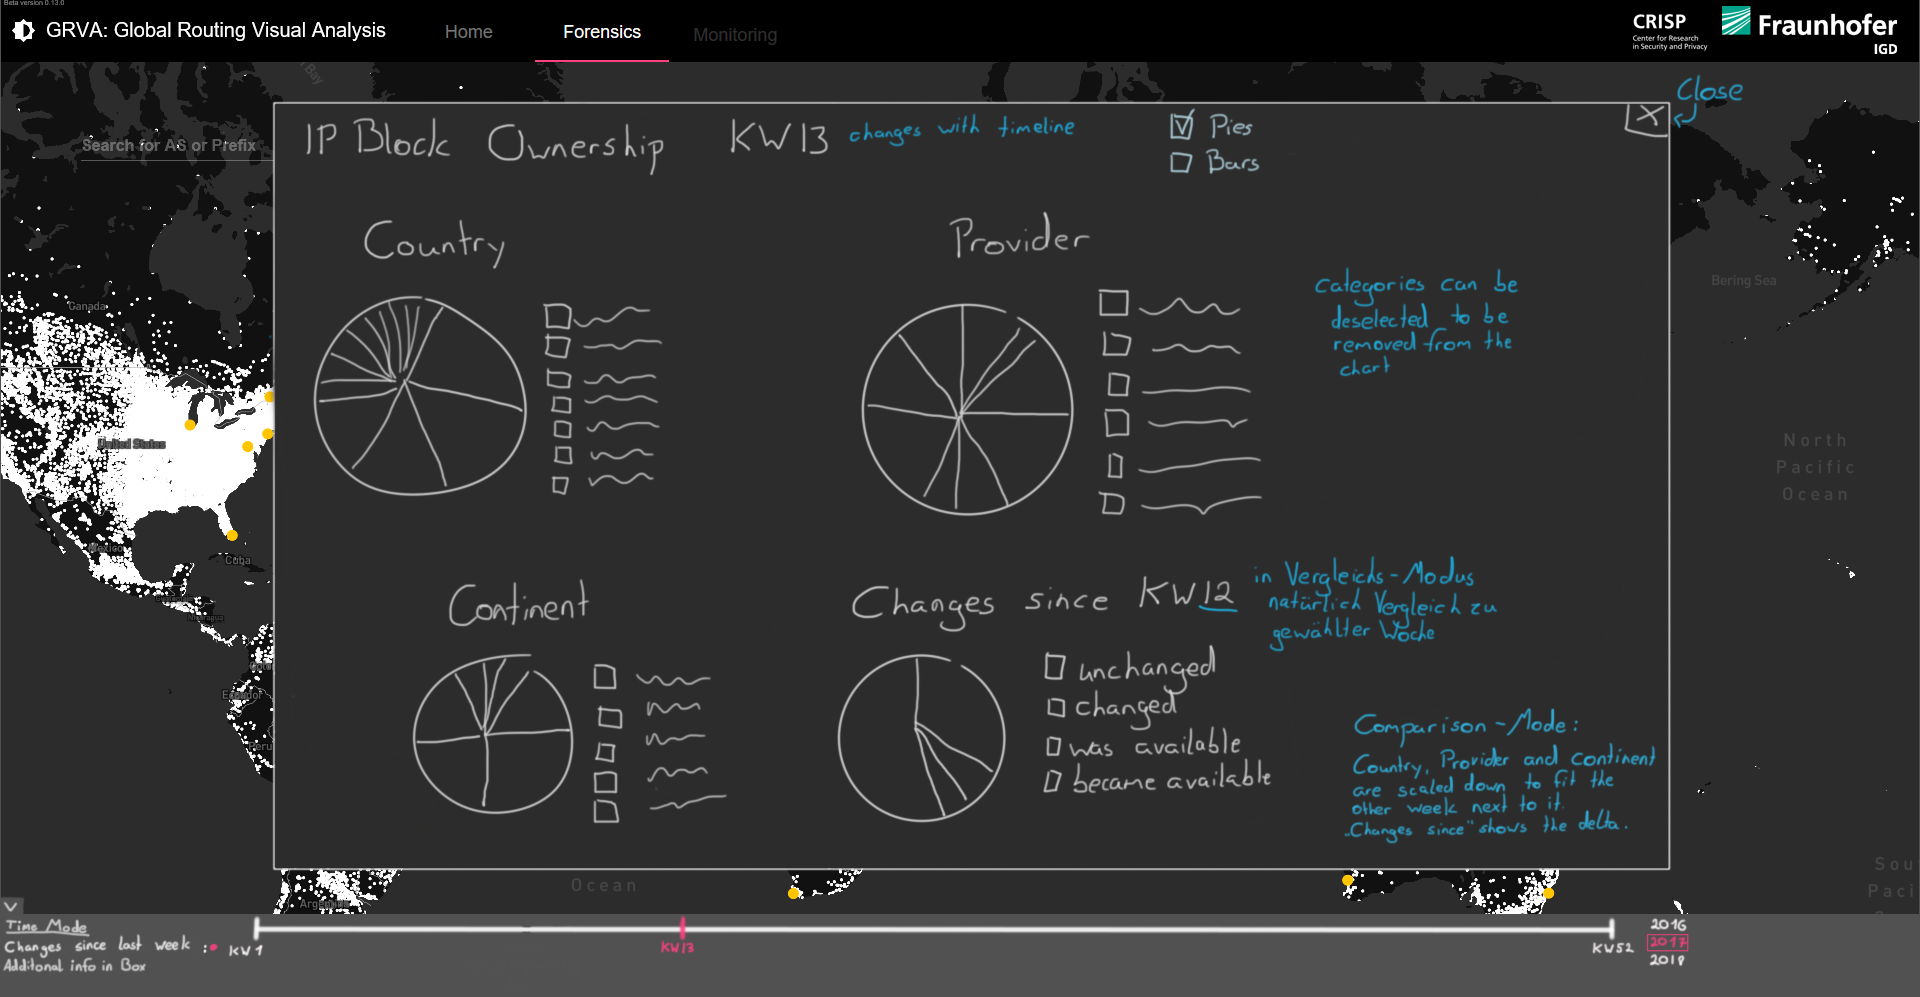 Beta version 0.13.0
GRVA: Global Routing Visual Analysis
Home
Forensics
Monitoring
CRISP
Center for Research
in Security and Privacy
Fraunhofer
IGD
Search for AS or Prefix
Close
IP Block Ownership KW13
changes with timeline
Pies
Bars
X
Country
Provider
categories can be
deselected to be
removed from the
chart
Continent
Changes since KW12
in Vergleichs-Modus
natürlich Vergleich zu
gewählter Woche
unchanged
changed
was available
became available
Comparison-Mode:
Country, Provider and continent
are scaled down to fit the
other week next to it.
„Changes since" shows the delta.
Bay
Canada
United States
Mexico
Cuba
Nicaragua
Ecuador
Peru
Bering Sea
North
Pacific
Ocean
Ocean
Sou
Paci
Time Mode
Changes since last week :
Additonal info in Box
KW1
KW13
KW52
2016
2017
2018